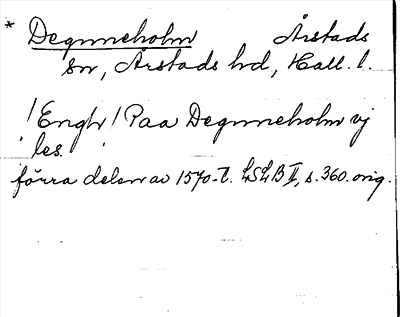 * Degnneholm Årstads
sn, Årstads hd, Hall. l.
/Engh/ Paa Degnneholm vj
les.
förra delen av 1570-t. LSLB II, s. 360. orig.